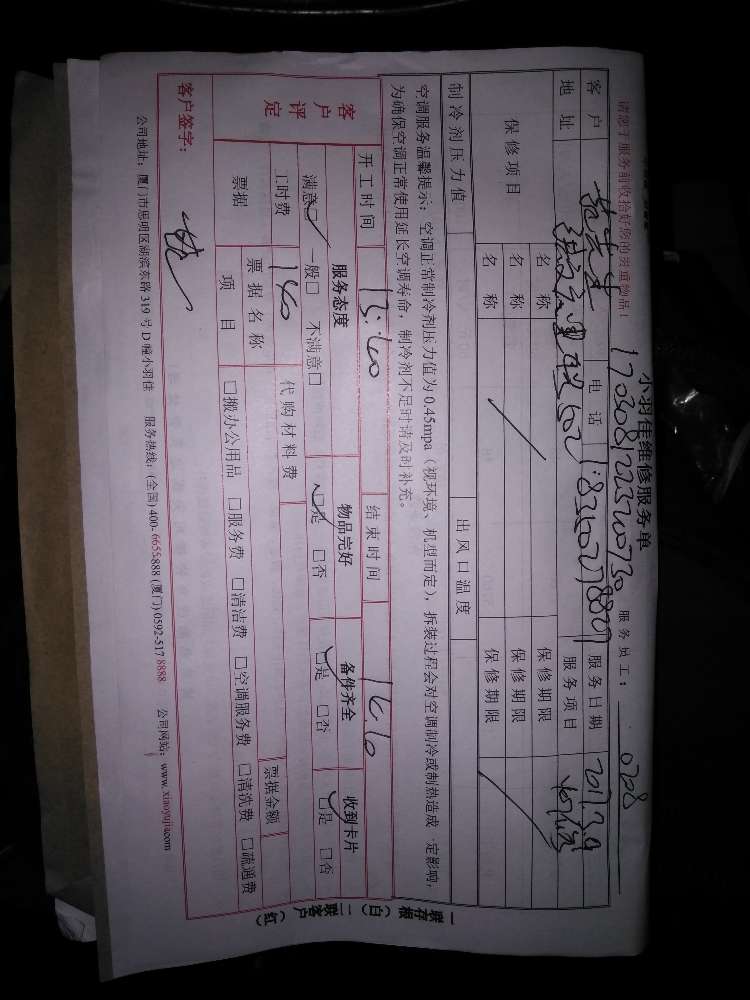 小羽佳维修服务单
请您于服务前收拾好您的贵重物品！ 服务员工： 0708
客户 电话 服务日期 2017.7.9
地址 服务项目
保修项目 名称 保修期限
名称 保修期限
名称 保修期限
制冷剂压力值 出风口温度
空调服务温馨提示：空调正常制冷剂压力值为0.45mpa（视环境、机型而定），拆装过程会对空调制冷或制热造成一定影响，
为确保空调正常使用延长空调寿命，制冷剂不足时请及时补充。
开工时间 13:40 结束时间
客户评定 服务态度 物品完好 备件齐全 收到卡片
满意□ 一般□ 不满意□ □是 □否 □是 □否 □是 □否
工时费 140 代购材料费
票据 票据名称 票据金额
项目 □搬办公用品 □服务费 □清洁费 □空调服务费 □清洗费 □流通费
客户签字：
公司地址：厦门市思明区湖滨东路319号D幢小羽佳 服务热线：(全国)400-6655888(厦门)0592-5178888 公司网站：www.xiaoyujia.com
一联存根（白） 二联客户（红）